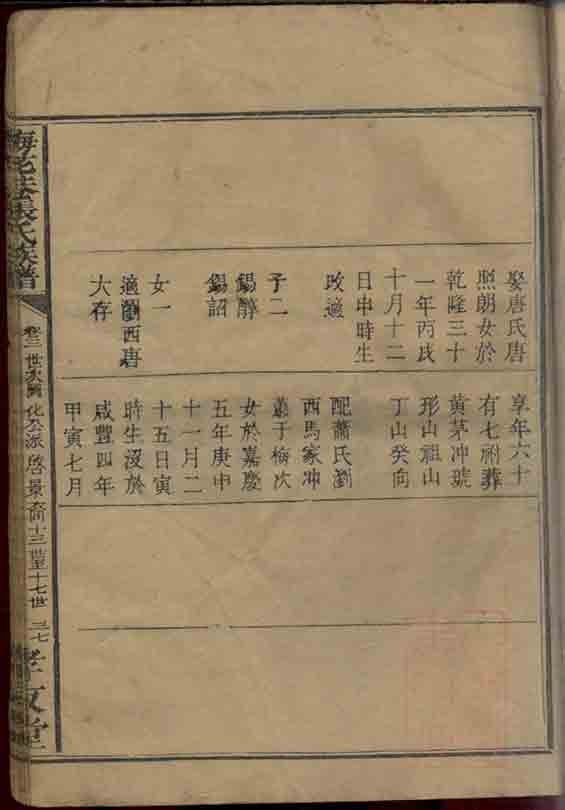 娶唐氏唐
照朗女於
乾隆三十
一年丙戌
十月十二
日申時生
改適
子二
錫醇
錫詔
女一
適劉西唐
大存
享年六十
有七祔葬
黃茅冲虎
形山祖山
丁山癸向
配蕭氏瀏
西馬家冲
蕭于梅次
女於嘉慶
五年庚申
十一月二
十五日寅
時生沒於
咸豐四年
甲寅七月
梅花巷張氏族譜
卷三 世次 化公派 啓景裔 十三至十七世 三七
孝友堂